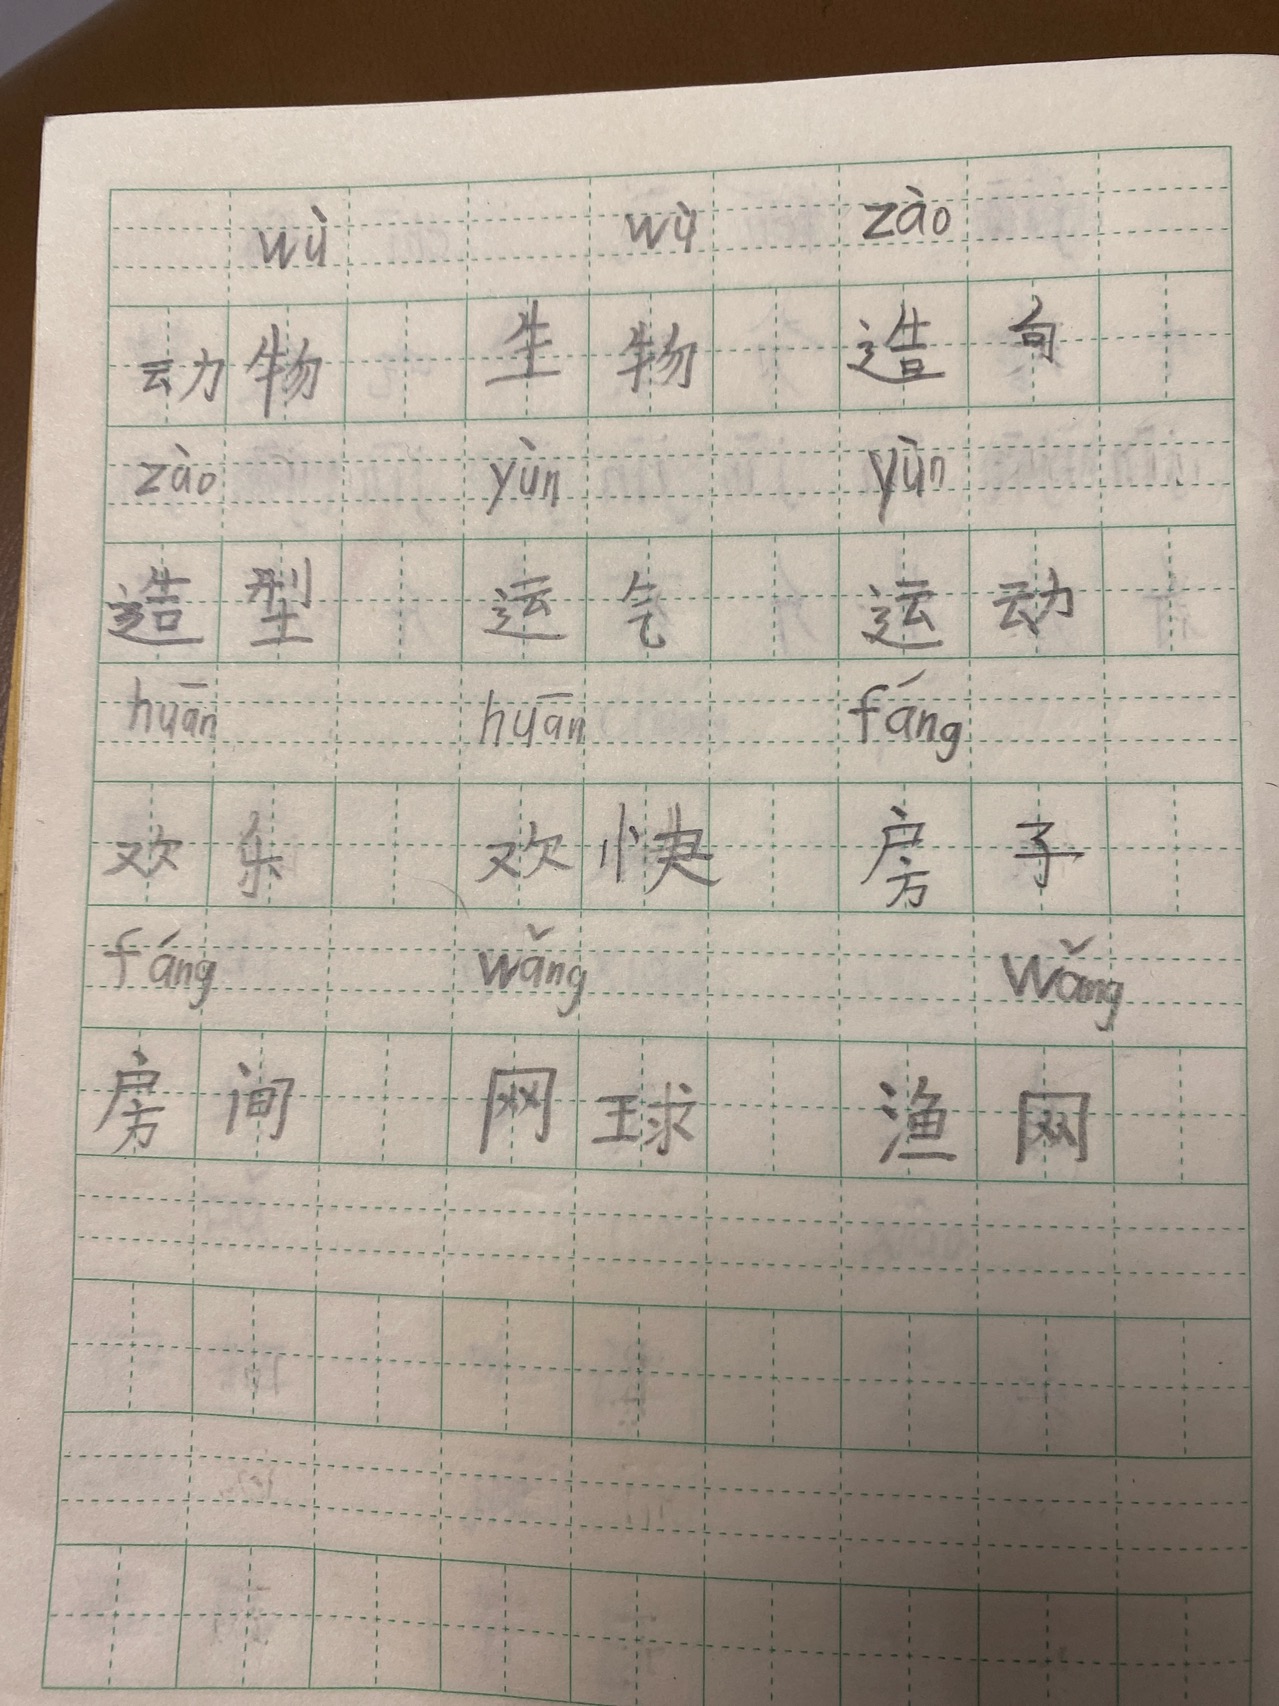 wù wù zào
动物 生物 造句
zào yùn yùn
造型 运气 运动
huān huān fáng
欢乐 欢快 房子
fáng wǎng wǎng
房间 网球 渔网